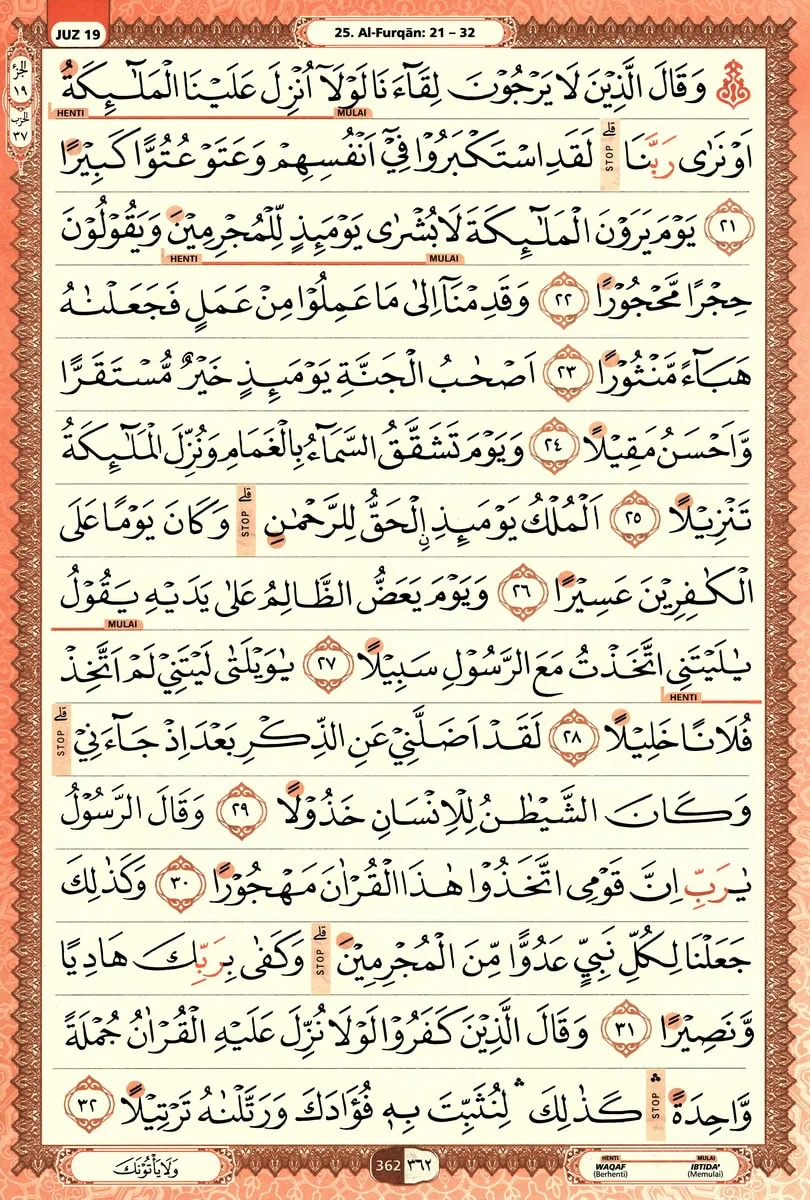 JUZ 19
25. Al-Furqān: 21 – 32
الجزء ١٩
الحزب ٣٧
وَقَالَ الَّذِيْنَ لَا يَرْجُوْنَ لِقَاۤءَنَا لَوْلَآ اُنْزِلَ عَلَيْنَا الْمَلٰۤىِٕكَةُ
HENTI MULAI
اَوْ نَرٰى رَبَّنَا ۗ لَقَدِ اسْتَكْبَرُوْا فِيْٓ اَنْفُسِهِمْ وَعَتَوْ عُتُوًّا كَبِيْرًا
STOP
٢١ يَوْمَ يَرَوْنَ الْمَلٰۤىِٕكَةَ لَا بُشْرٰى يَوْمَىِٕذٍ لِّلْمُجْرِمِيْنَ وَيَقُوْلُوْنَ
HENTI MULAI
حِجْرًا مَّحْجُوْرًا ٢٢ وَقَدِمْنَآ اِلٰى مَا عَمِلُوْا مِنْ عَمَلٍ فَجَعَلْنٰهُ
هَبَاۤءً مَّنْثُوْرًا ٢٣ اَصْحٰبُ الْجَنَّةِ يَوْمَىِٕذٍ خَيْرٌ مُّسْتَقَرًّا
وَّاَحْسَنُ مَقِيْلًا ٢٤ وَيَوْمَ تَشَقَّقُ السَّمَاۤءُ بِالْغَمَامِ وَنُزِّلَ الْمَلٰۤىِٕكَةُ
تَنْزِيْلًا ٢٥ اَلْمُلْكُ يَوْمَىِٕذِ ِۨالْحَقُّ لِلرَّحْمٰنِ ۗ وَكَانَ يَوْمًا عَلَى
STOP
الْكٰفِرِيْنَ عَسِيْرًا ٢٦ وَيَوْمَ يَعَضُّ الظَّالِمُ عَلٰى يَدَيْهِ يَقُوْلُ
MULAI
يٰلَيْتَنِى اتَّخَذْتُ مَعَ الرَّسُوْلِ سَبِيْلًا ٢٧ يٰوَيْلَتٰى لَيْتَنِيْ لَمْ اَتَّخِذْ
HENTI
فُلَانًا خَلِيْلًا ٢٨ لَقَدْ اَضَلَّنِيْ عَنِ الذِّكْرِ بَعْدَ اِذْ جَاۤءَنِيْ ۗ
STOP
وَكَانَ الشَّيْطٰنُ لِلْاِنْسَانِ خَذُوْلًا ٢٩ وَقَالَ الرَّسُوْلُ
يٰرَبِّ اِنَّ قَوْمِى اتَّخَذُوْا هٰذَا الْقُرْاٰنَ مَهْجُوْرًا ٣٠ وَكَذٰلِكَ
جَعَلْنَا لِكُلِّ نَبِيٍّ عَدُوًّا مِّنَ الْمُجْرِمِيْنَ ۗ وَكَفٰى بِرَبِّكَ هَادِيًا
STOP
وَّنَصِيْرًا ٣١ وَقَالَ الَّذِيْنَ كَفَرُوْا لَوْلَا نُزِّلَ عَلَيْهِ الْقُرْاٰنُ جُمْلَةً
وَّاحِدَةً ۛ كَذٰلِكَ ۛ لِنُثَبِّتَ بِهٖ فُؤَادَكَ وَرَتَّلْنٰهُ تَرْتِيْلًا ٣٢
STOP
وَلَا يَأْتُوْنَكَ
362 ٣٦٢
HENTI WAQAF (Berhenti)
MULAI IBTIDA' (Memulai)